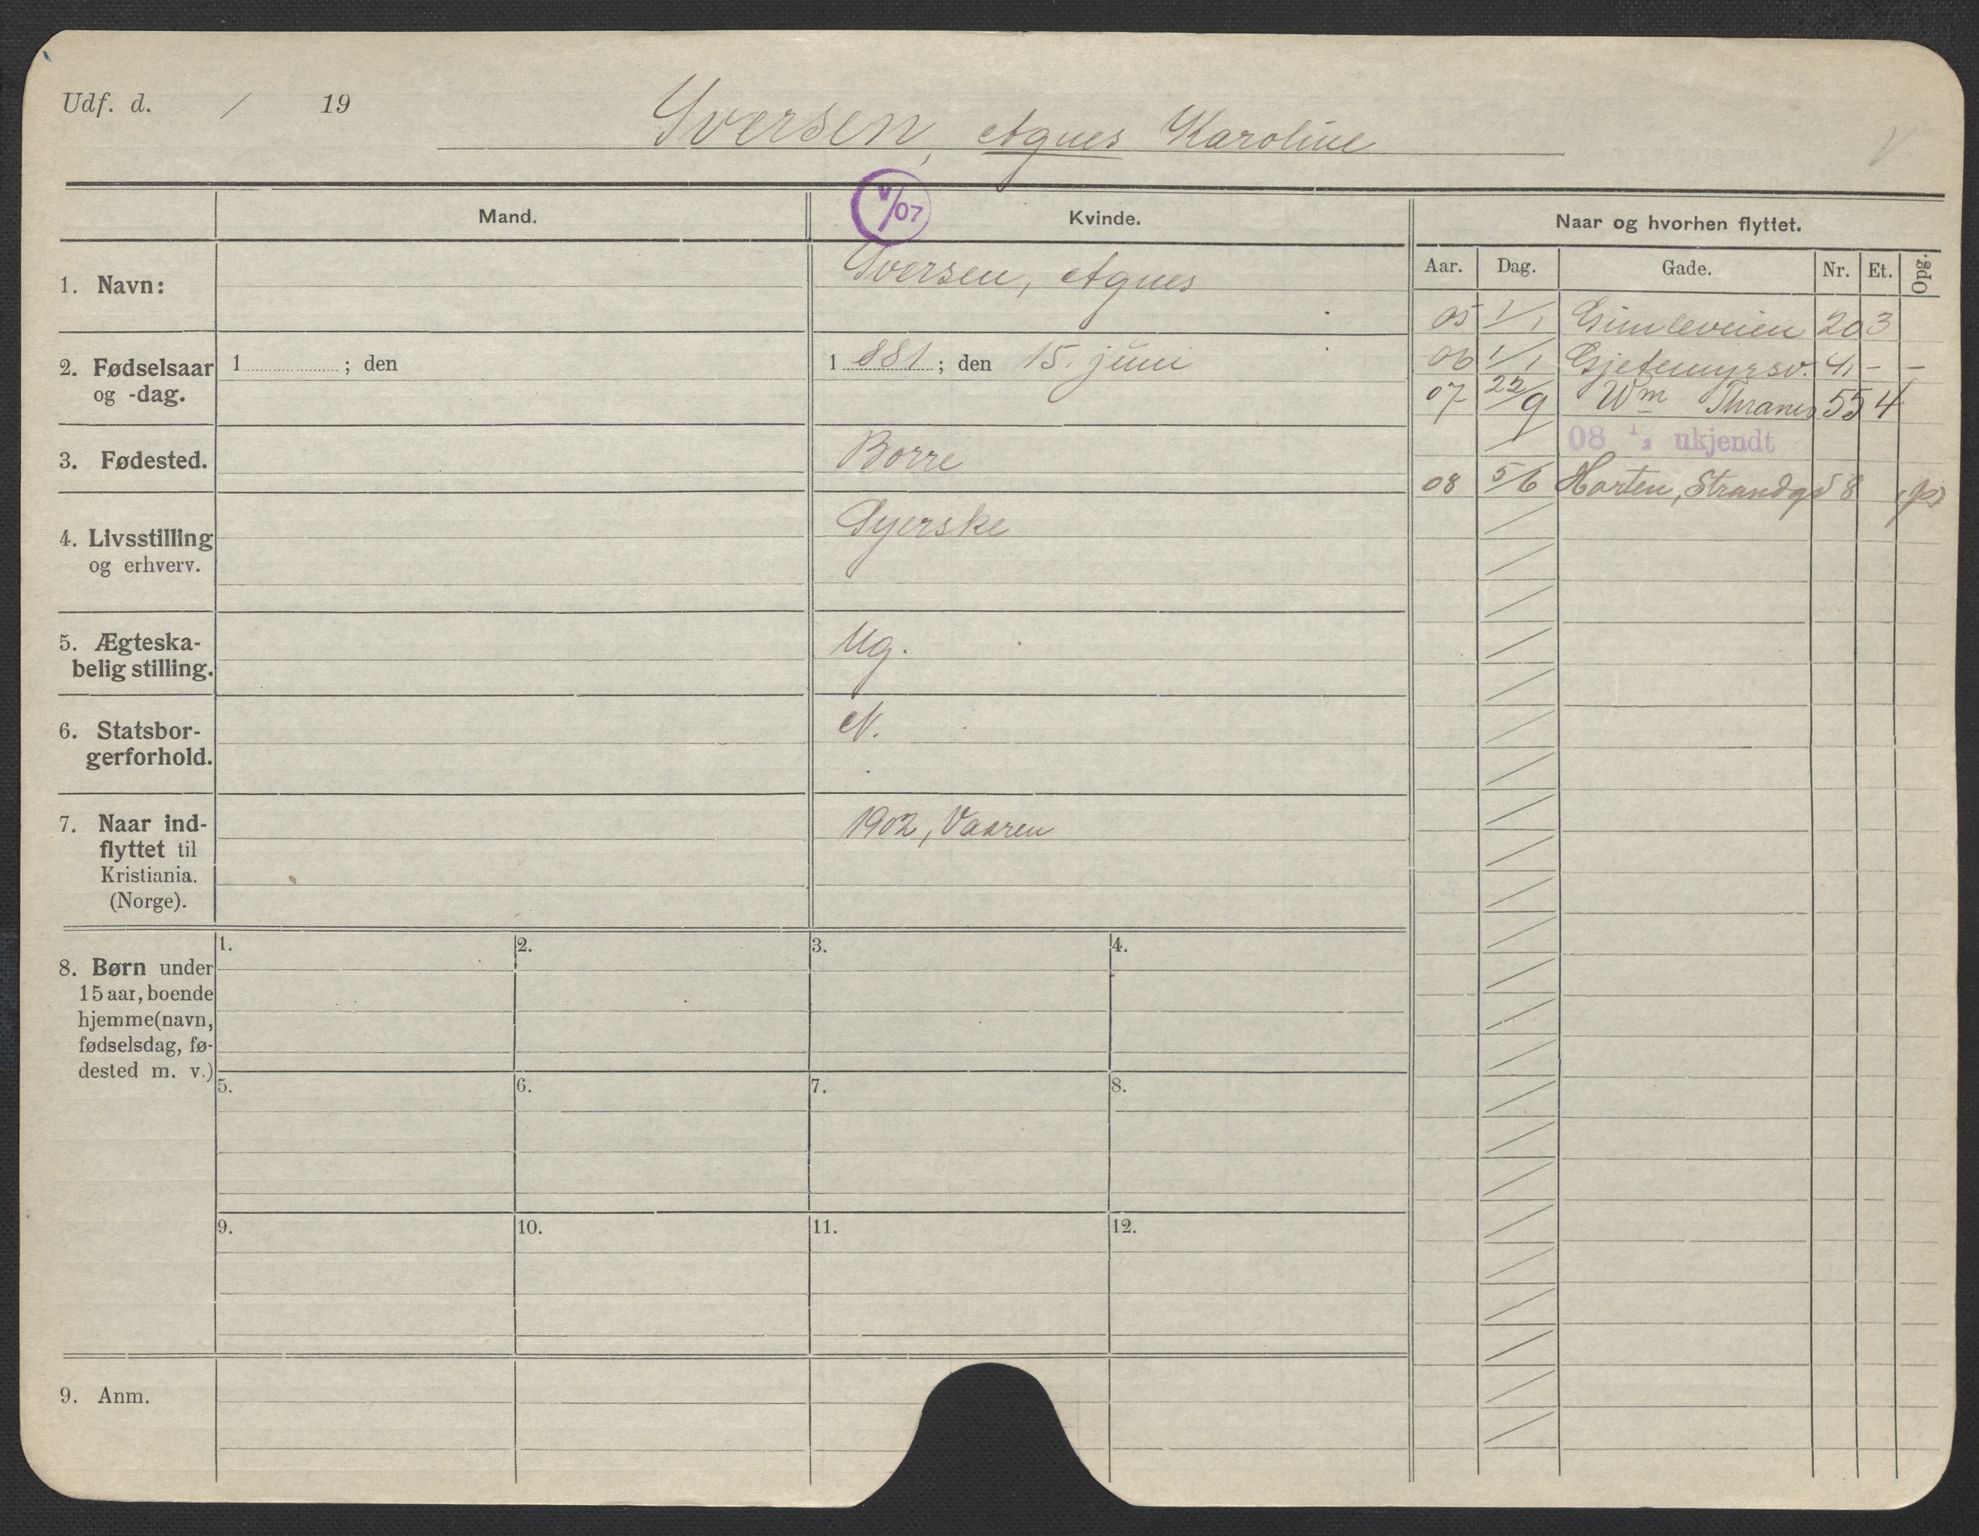 Udf. d. / 19
Iversen, Agnes Karoline
Mand.
V/07
Kvinde.
Naar og hvorhen flyttet.
Aar. Dag. Gade. Nr. Et. Opg.
1. Navn:
Iversen, Agnes
2. Fødselsaar
og -dag.
1 ; den
1 881 ; den 15. juni
3. Fødested.
Borre
4. Livsstilling
og erhverv.
Syerske
5. Ægteska-
belig stilling.
Ug.
6. Statsbor-
gerforhold.
N.
7. Naar ind-
flyttet til
Kristiania.
(Norge).
1902, Vaaren
05 1/1 Gimleveien 20 3
06 1/1 Gjetemyrsv. 41 - -
07 22/9 Wm Thranes 55 4
08 1/2 ukjendt
08 5/6 Horten, Strandg 58
8. Børn under
15 aar, boende
hjemme (navn,
fødselsdag, fø-
dested m. v.)
1. 2. 3. 4.
5. 6. 7. 8.
9. 10. 11. 12.
9. Anm.